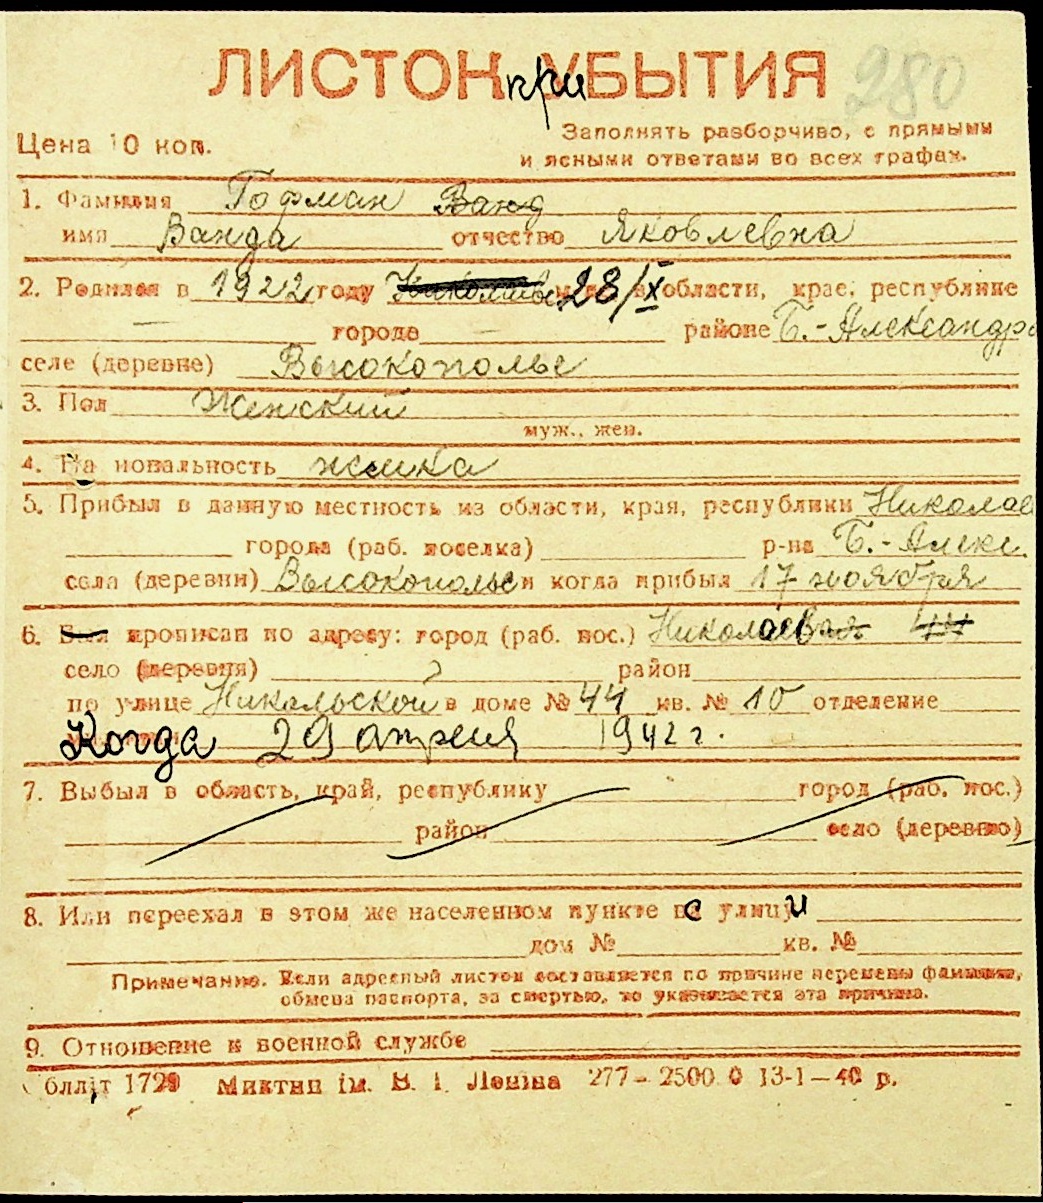 ЛИСТОК при УБЫТИЯ 280
Цена 10 коп.
Заполнять разборчиво, с прямыми
и ясными ответами во всех графах.
1. Фамилия Гофман Ванд
имя Ванда отчество Яковлевна
2. Родился в 1922 году 28/IX области, крае, республике
— городе — районе Б.-Александро
селе (деревне) Высокополье
3. Пол Женский
муж., жен.
4. На иональность немка
5. Прибыл в данную местность из области, края, республики Николаев
города (раб. поселка) р-на Б.-Алекс.
села (деревни) Высокополье и когда прибыл 17 ноября
6. Был прописан по адресу: город (раб. пос.) Николаев
село (деревня) район
по улице Никольской в доме № 44 кв. № 10 отделение
Когда 29 апреля 1942 г.
7. Выбыл в область, край, республику город (раб. пос.)
район село (деревню)
8. Или переехал в этом же населенном пункте с улицы
дом № кв. №
Примечание. Если адресный листок составляется по причине перемены фамилии,
обмена паспорта, за смертью, то указывается эта причина.
9. Отношение к военной службе
блліт 1729 Миктип ім. В. І. Леніна 277-2500 0 13-1-40 р.